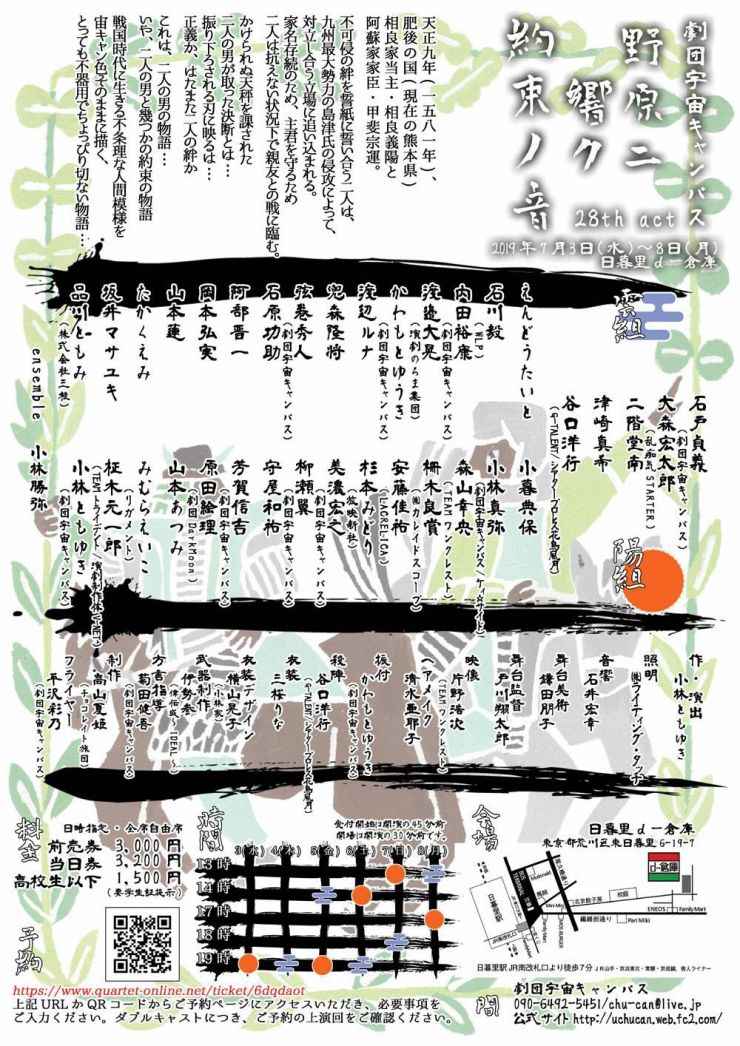 劇団宇宙キャンバス
野原ニ
響ク
約束ノ音
28th act
2019年7月3日(水)〜8日(月)
日暮里d-倉庫
天正九年(一五八一年)、
肥後の国(現在の熊本県)
相良家当主・相良義陽と
阿蘇家家臣・甲斐宗運。
不可侵の絆を誓紙に誓い合う二人は、
九州最大勢力の島津氏の侵攻によって、
対立し合う立場に追い込まれる。
家名存続のため、主君を守るため
二人は抗えない状況下で親友との戦に臨む。
かけられぬ天秤を課された
二人の男が取った決断とは…
振り下ろされる刃に映るは…
正義か、はたまた二人の絆か
これは、二人の男の物語…
いや、二人の男と幾つかの約束の物語
戦国時代に生きる不条理な人間模様を
宙キャン色そのままに描く、
とっても不器用でちょっぴり切ない物語…
雲組
えんどうたいと
石川毅
(WLP)
内田裕康
(劇団宇宙キャンバス)
渡邉大晃
(演劇のらま集団)
かわもとゆうき
(劇団宇宙キャンバス)
渡辺ルナ
兜森隆将
弦巻秀人
(劇団宇宙キャンバス)
石原功助
阿部晋一
岡本弘実
山本蓮
たかくえみ
坂井マサユキ
品川ともみ
(株式会社三桜)
ensemble
小林勝弥
石戸貞義
(劇団宇宙キャンバス)
大森宏太郎
(乱痴気STARTER)
二階堂南
津崎真希
谷口洋行
(g-TALENT/シアタープロレス花鳥風月)
陽組
小暮典保
小林真弥
(劇団宇宙キャンバス/ケィ☆サイド)
森山幸央
(TEAMワンクレスト)
柵木良賞
(㈱カレイドスコープ)
安藤佳祐
(LAGRELICA)
杉本みどり
(放映新社)
美濃宏之
柳瀬翼
(劇団宇宙キャンバス)
守屋和祐
芳賀信吉
(劇団宇宙キャンバス)
原田絵理
(劇団DarkMoon)
山本あつみ
みむらえいこ
(リガメント)
柾木元一郎
小林ともゆき
(劇団宇宙キャンバス)
作・演出
小林ともゆき
照明
㈱ライティング・タッチ
音響
石井宏幸
舞台美術
鎌田朋子
舞台監督
戸川翔太郎
映像
片野浩次
(TEAMワンクレスト)
ヘアメイク
清水亜耶子
振付
かわもとゆうき
殺陣
谷口洋行
(g-TALENT/シアタープロレス花鳥風月)
衣装
三桜りな
衣装デザイン
横山晃子
(小林家)
武器制作
伊勢参
(俳協〜IDEAL〜)
方言指導
菊田健吾
(劇団宇宙キャンバス)
制作
高山夏姫
(チョコレイト旅団)
フライヤー
平沢彩乃
(劇団宇宙キャンバス)
料金
日時指定・全席自由席
前売券 3,000円
当日券 3,200円
高校生以下 1,500円
(要学生証提示)
予約
時間
受付開始は開演の45分前、
開場は開演の30分前です。
3(水) 4(木) 5(金) 6(土) 7(日) 8(月)
13時
14時
17時
18時
19時
会場
日暮里d-倉庫
東京都荒川区東日暮里6-19-7
d-倉庫
日暮里駅
JR南改札口
北京餃子房
校庭
ENEOS
FamilyMart
繊維街通り
Pari Miki
FamilyMart
日暮里駅JR南改札口より徒歩7分 JR山手・京浜東北・常磐・京成線、舎人ライナー
https://www.quartet-online.net/ticket/6dqdaot
上記URLかQRコードからご予約ページにアクセスいただき、必要事項を
ご入力ください。ダブルキャストにつき、ご予約の上演回をご確認ください。
問
劇団宇宙キャンバス
090-6492-5451/chu-can@live.jp
公式サイトhttp://uchucan.web.fc2.com/